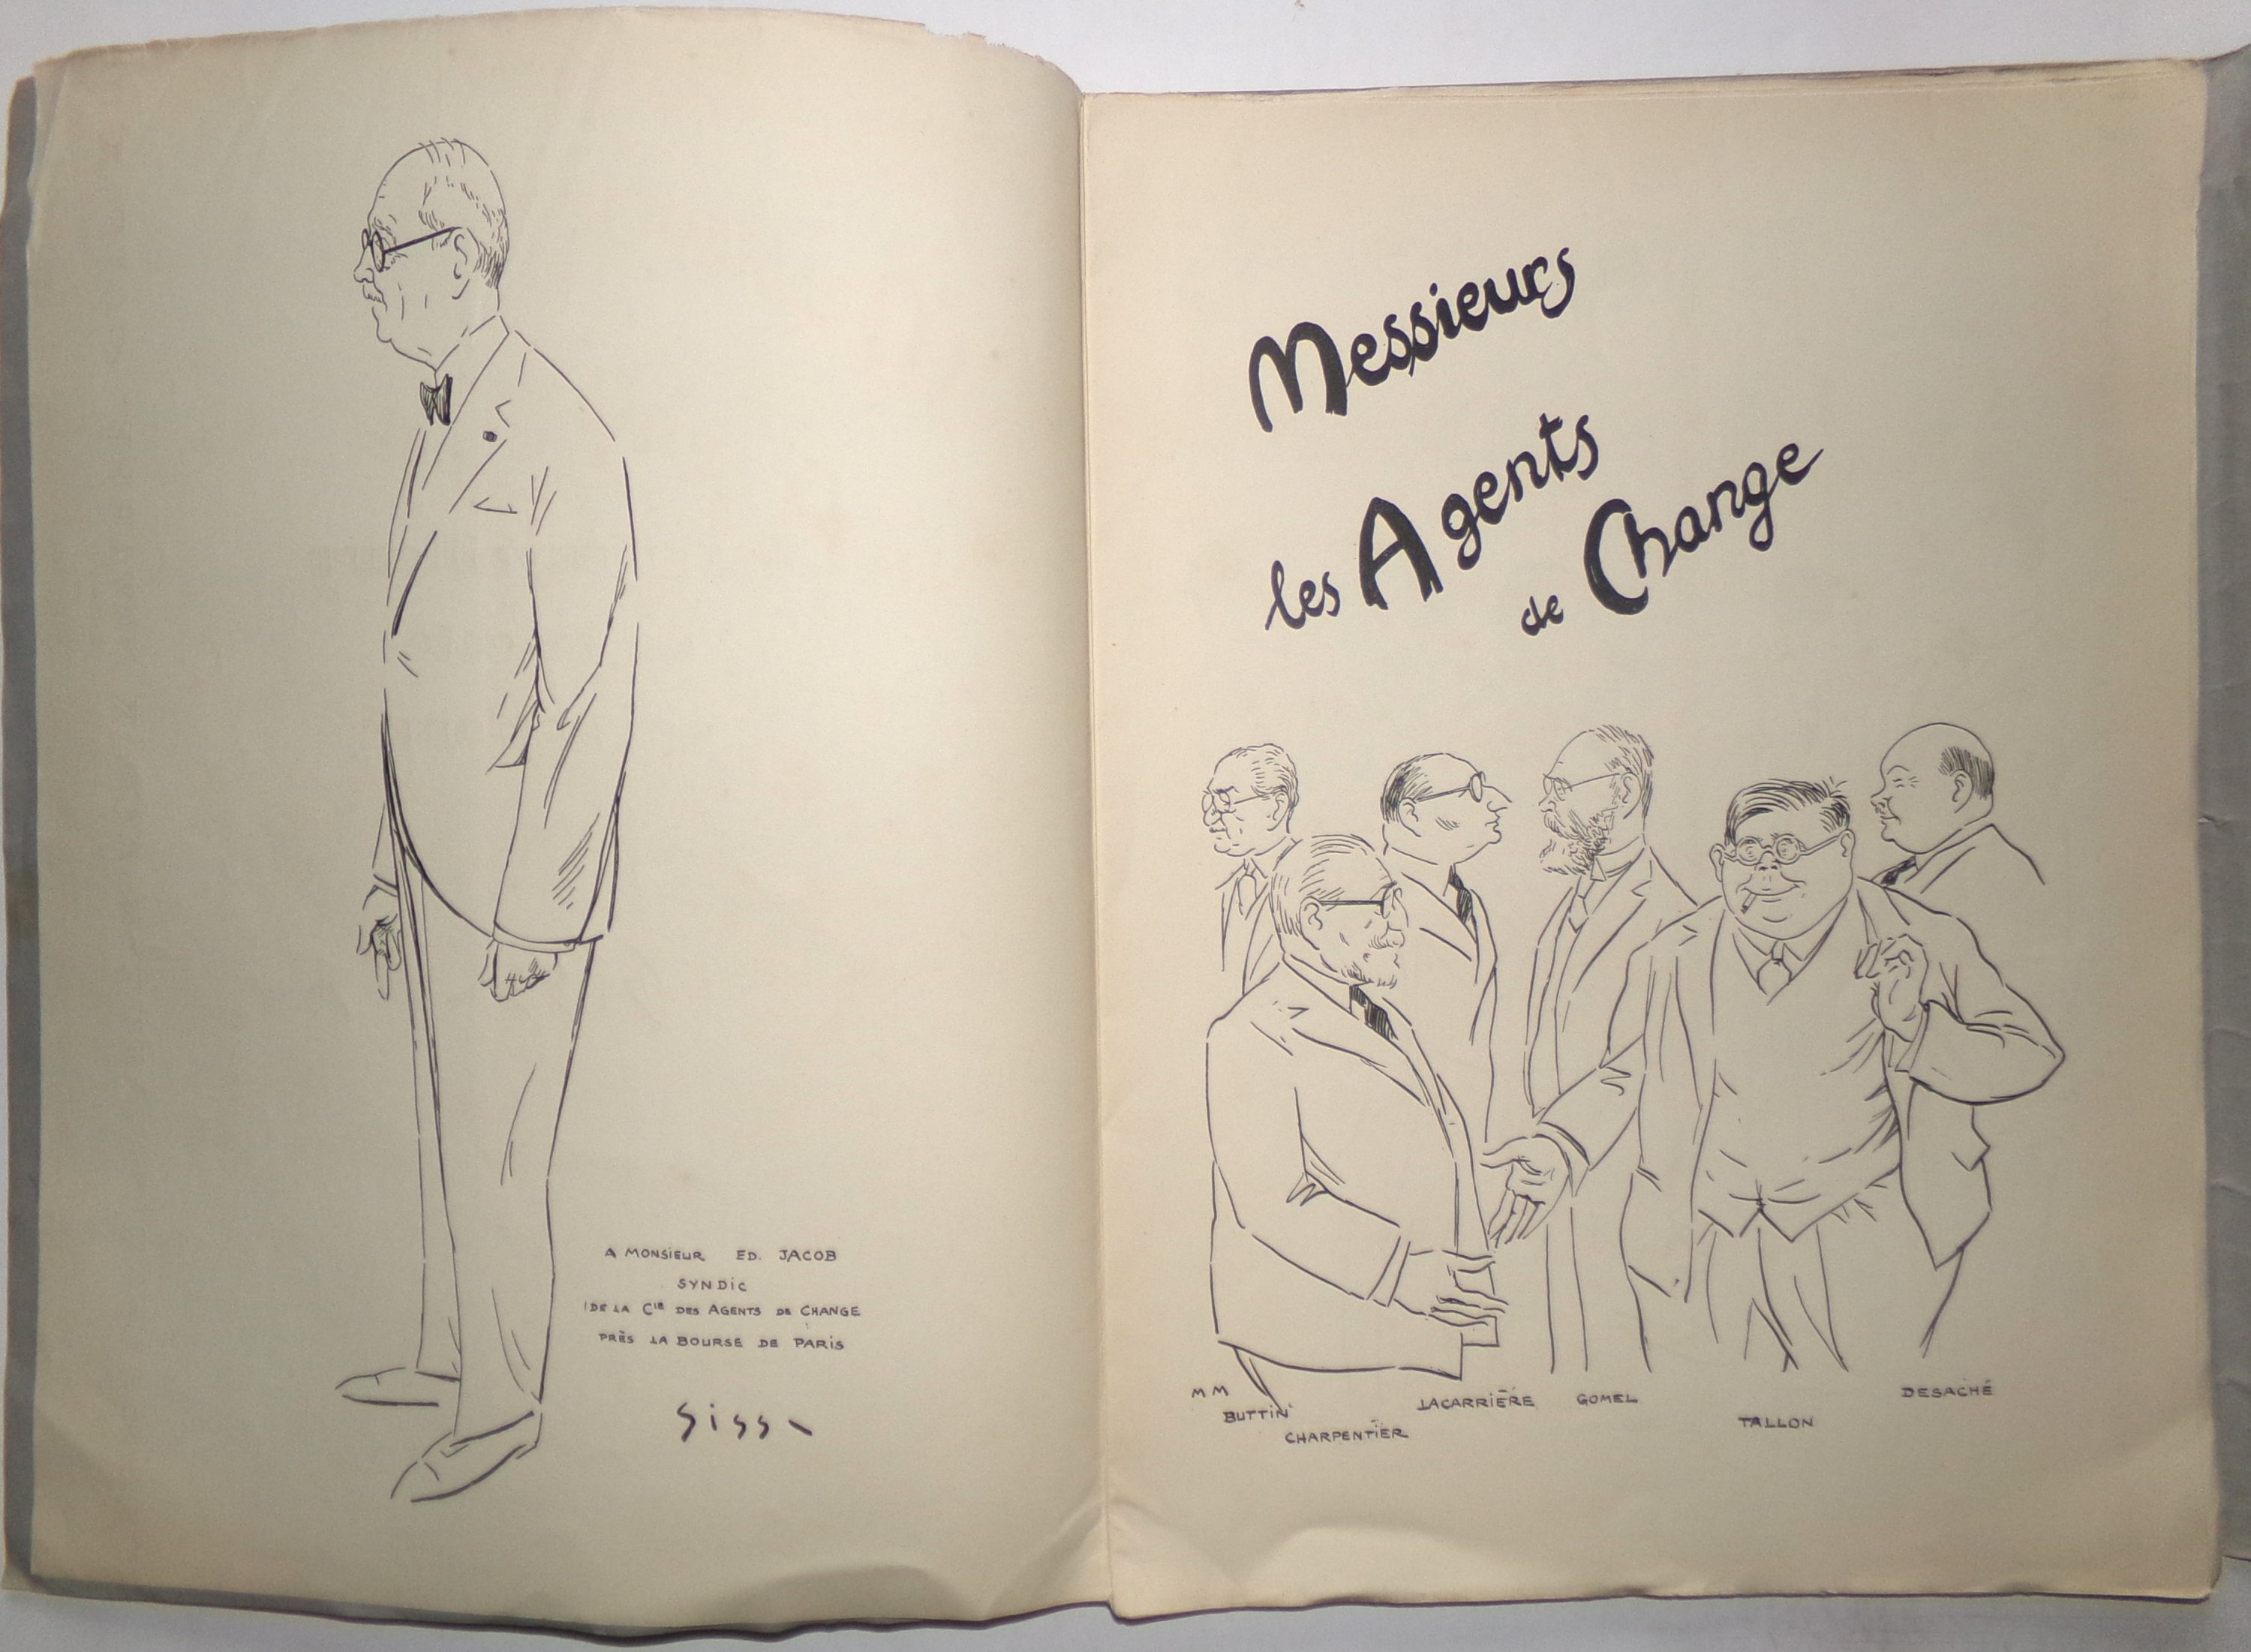 A MONSIEUR ED. JACOB
SYNDIC
DE LA Cie DES AGENTS DE CHANGE
PRÈS LA BOURSE DE PARIS
Messieurs
les Agents
de Change
MM
BUTTIN
CHARPENTIER
LACARRIÈRE
GOMEL
TALLON
DESACHÉ